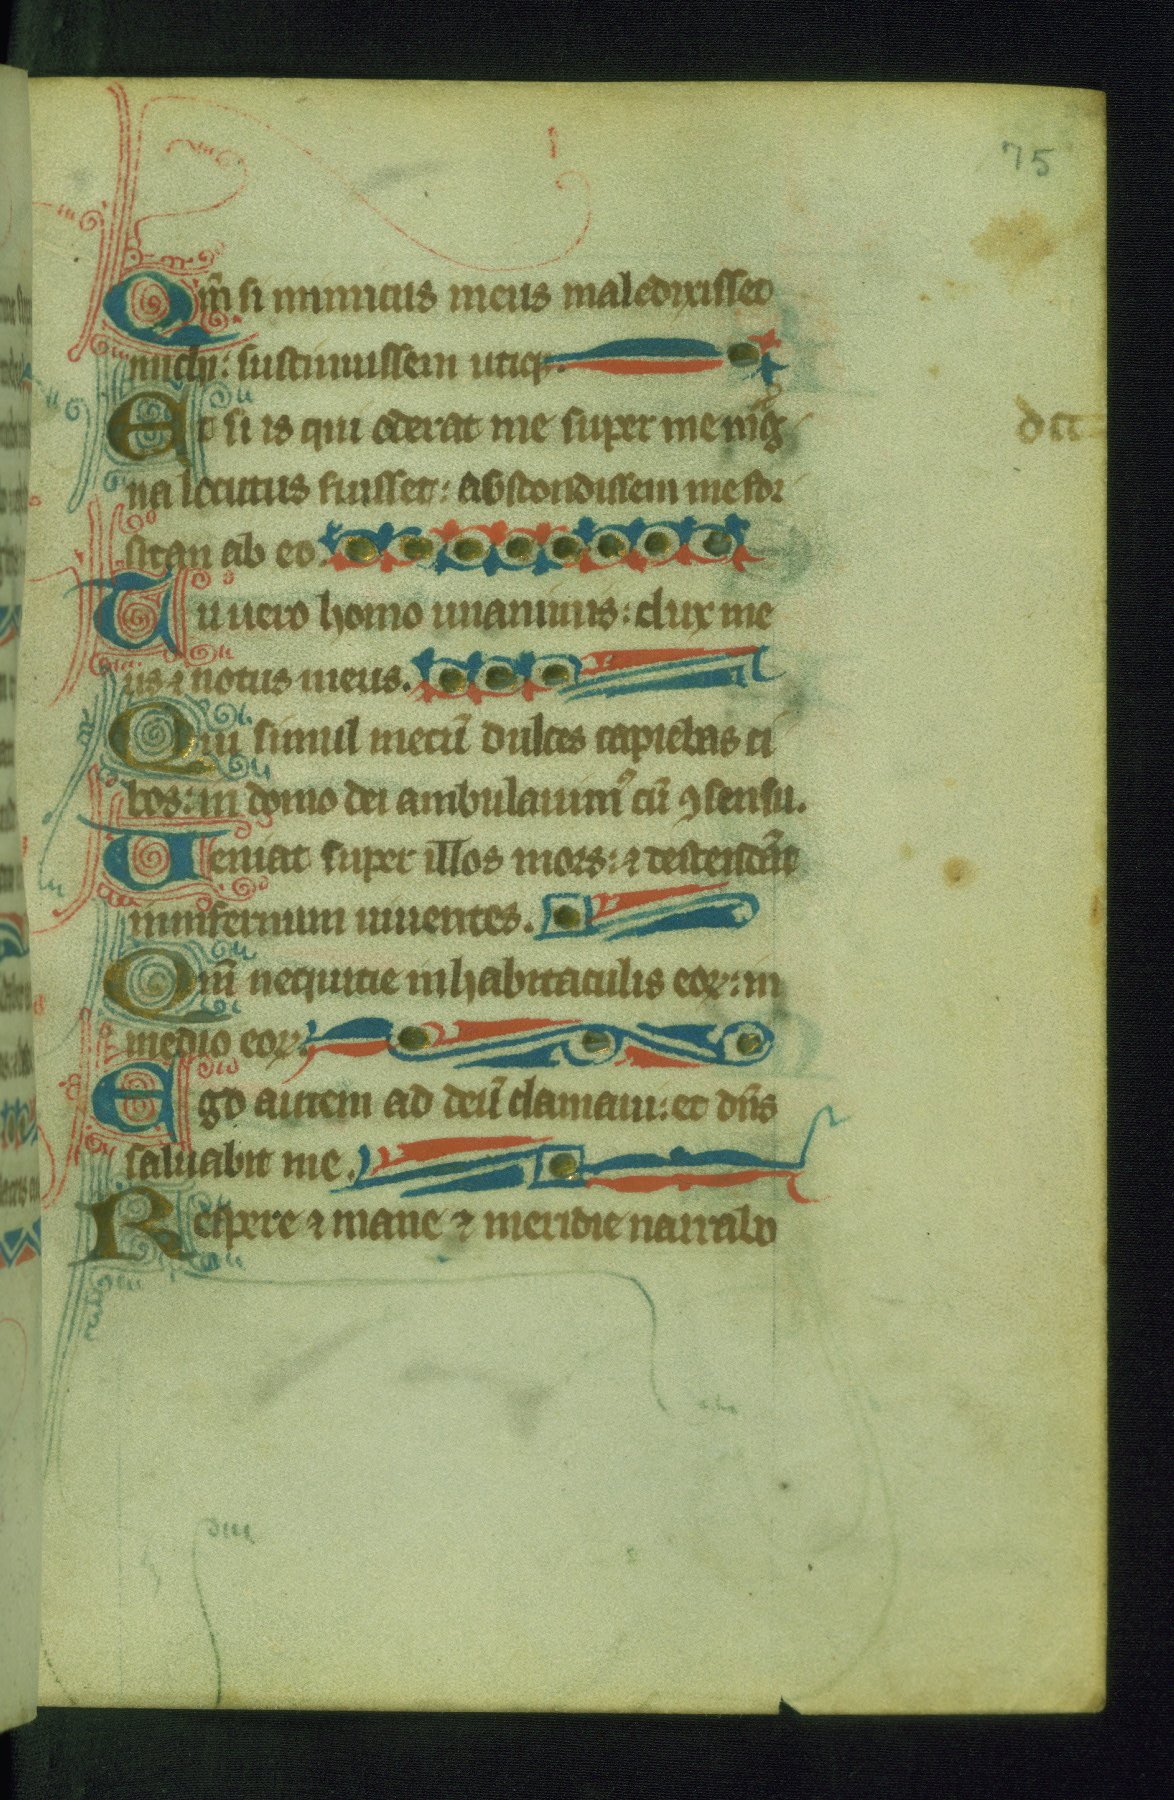 75
Qm̄ si inimicus meus maledixisset
michi: sustinuissem utiqꝫ.
Et si is qui oderat me super me mag
na locutus fuisset: abscondissem me for
sitan ab eo.
Tu uero homo unanimis: dux me
us ⁊ notus meus.
Qui simul mecū dulces capiebas ci
bos: in domo dei ambulauimꝰ cū ꝯsensu.
Ueniat super illos mors: ⁊ descendāt
in infernum uiuentes.
Qm̄ nequitie in habitaculis eoꝝ: in
medio eoꝝ.
Ego autem ad deū clamaui: et dn̄s
saluabit me.
Respere ⁊ mane ⁊ meridie narrabo